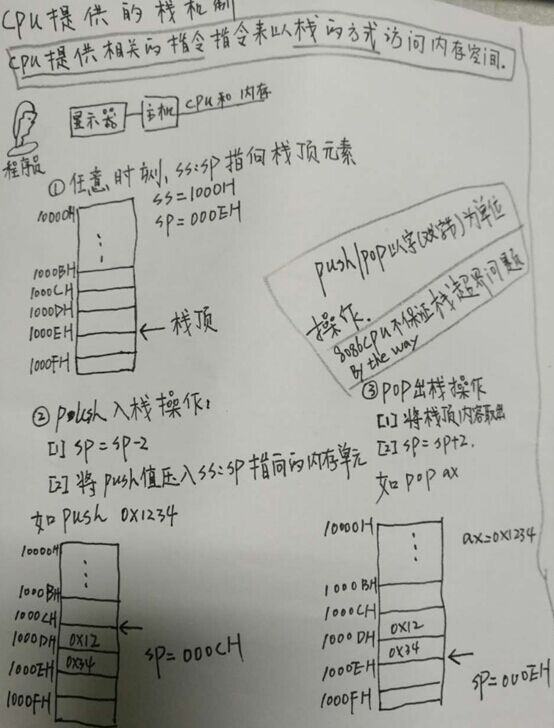 CPU提供的栈机制
CPU提供相关的指令指令来以栈的方式访问内存空间.
显示器 主机 CPU和内存
程序员
①任意时刻,SS:SP指向栈顶元素
SS=1000H
SP=000EH
10000H
1000BH
1000CH
1000DH
1000EH ← 栈顶
1000FH
push/pop以字(双字节)为单位
操作.
8086CPU不保证栈超界问题
By the way
②push入栈操作:
[1] SP=SP-2
[2] 将push值压入SS:SP指向的内存单元
如push 0X1234
10000H
1000BH
1000CH
1000DH 0X12
1000EH 0X34
1000FH
SP=000CH
③POP出栈操作
[1] 将栈顶内容取出
[2] SP=SP+2.
如pop ax
10000H
ax=0X1234
1000BH
1000CH
1000DH 0X12
1000EH 0X34
1000FH
SP=000EH